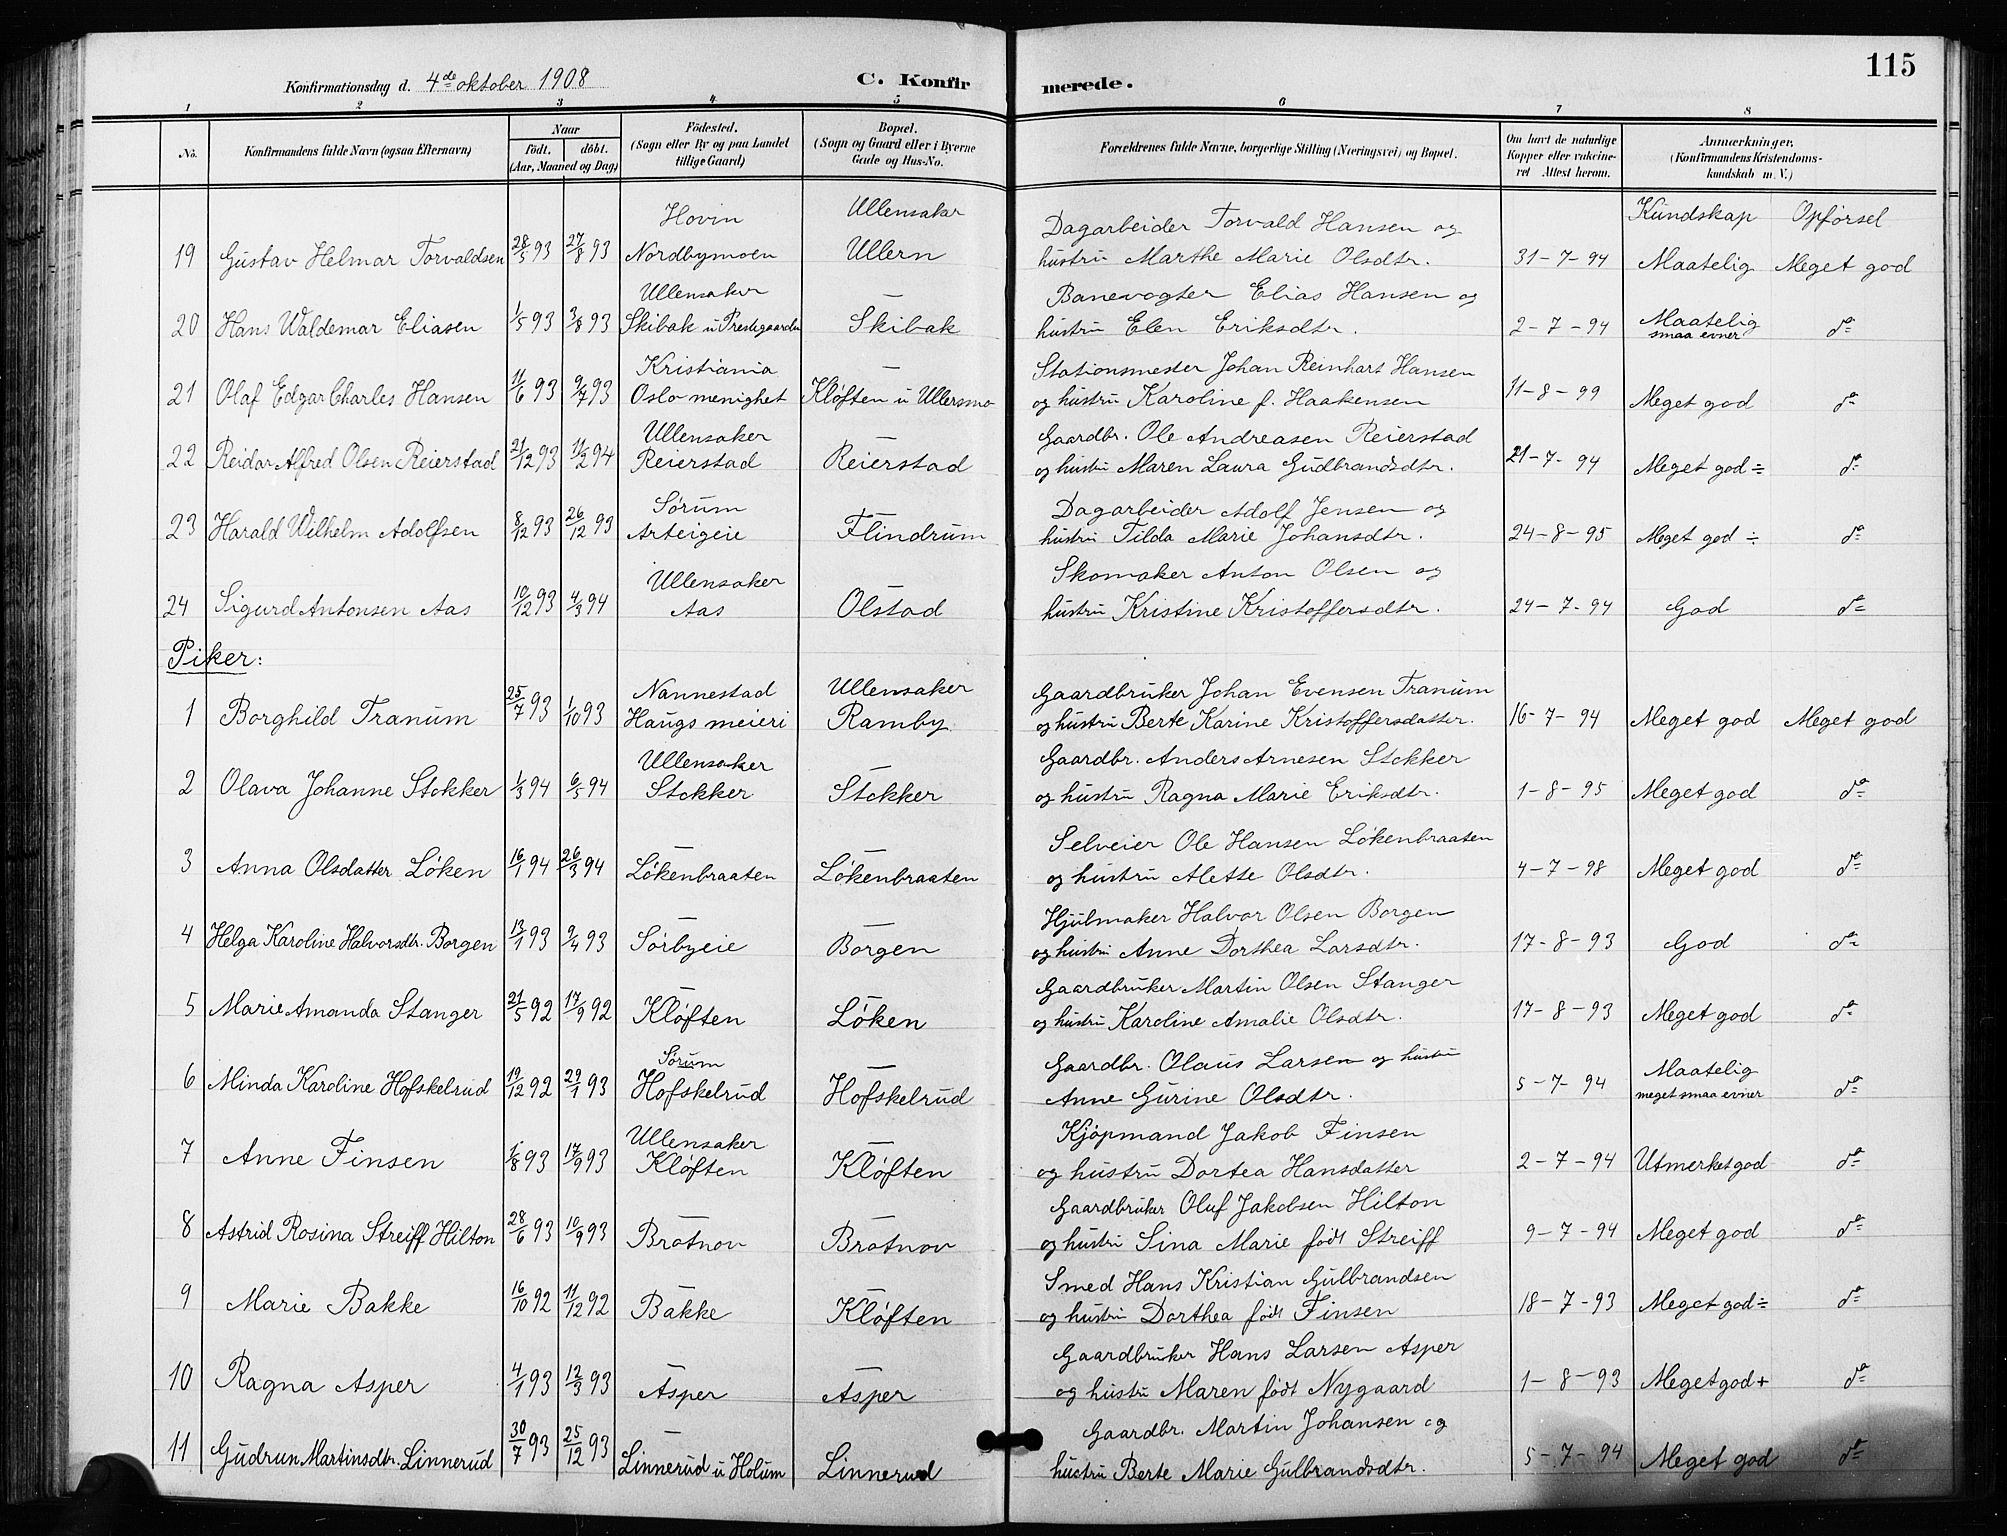 115
Konfirmationsdag d. 4de oktober 1908
C. Konfirmerede.
1 2 3 4 5 6 7 8
No.
Konfirmandens fulde Navn (ogsaa Efternavn)
Naar
født. døbt.
(Aar, Maaned og Dag)
Födested.
(Sogn eller By og paa Landet
tillige Gaard)
Bopæl.
(Sogn og Gaard eller i Byerne
Gade og Hus-No.
Forældrenes fulde Navne, borgerlige Stilling (Næringsvei) og Bopæl.
Om havt de naturlige
Kopper eller vakcine-
ret Attest herom.
Anmærkninger,
(Konfirmandens Kristendoms-
kundskab m. V.)
Hovin Ullensaker Dagarbeider Torvald Hansen og Kundskap Opførsel
19 Gustav Helmar Torvaldsen 28/5 93 27/8 93 Nordbymoen Ullern hustru Marthe Marie Olsdtr. 31-7-94 Maatelig Meget god
Ullensaker — Banevogter Elias Hansen og
20 Hans Waldemar Eliasen 1/5 93 3/8 93 Skibak u Prestegaarden Skibak hustru Elen Eriksdtr. 2-7-94 Maatelig do
smaa evner
Kristiania — Stationsmester Johan Reinhart Hansen
21 Olaf Edgar Charles Hansen 11/6 93 9/7 93 Oslo menighet Kløften u Ullersmo og hustru Karoline f. Haakensen 11-8-99 Meget god do
Ullensaker — Gaardbr. Ole Andreasen Reierstad
22 Reidar Alfred Olsen Reierstad 21/12 93 11/2 94 Reierstad Reierstad og hustru Maren Laura Gudbrandsdtr. 21-7-94 Meget god ÷ do
Sørum — Dagarbeider Adolf Jensen og
23 Harald Wilhelm Adolfsen 8/12 93 26/12 93 Arteigeie Flindrum hustru Tilda Marie Johansdtr. 24-8-95 Meget god ÷ do
Ullensaker — Skomaker Anton Olsen og
24 Sigurd Antonsen Aas 10/12 93 4/3 94 Aas Olstad hustru Kristine Kristoffersdtr. 24-7-94 God do
Piker:
Nannestad Ullensaker Gaardbruker Johan Evensen Tranum
1 Borghild Tranum 25/7 93 1/10 93 Haugs meieri Ramby og hustru Berte Karine Kristoffersdatter. 16-7-94 Meget god Meget god
Ullensaker — Gaardbr. Anders Arnesen Stokker
2 Olava Johanne Stokker 1/3 94 6/5 94 Stokker Stokker og hustru Ragna Marie Eriksdtr. 1-8-95 Meget god do
— — Selveier Ole Hansen Løkenbraaten
3 Anna Olsdatter Løken 16/1 94 26/3 94 Løkenbraaten Løkenbraaten og hustru Alette Olsdtr. 4-7-98 Meget god do
— — Hjulmaker Halvor Olsen Borgen
4 Helga Karoline Halvorsdtr. Borgen 13/1 93 9/4 93 Sørbyeie Borgen og hustru Anne Dorthea Larsdtr. 17-8-93 God do
— — Gaardbruker Martin Olsen Stanger
5 Marie Amanda Stanger 21/5 92 17/9 92 Kløften Løken og hustru Karoline Amalie Olsdtr. 17-8-93 Meget god do
Sørum — Gaardbr. Olaus Larsen og hustru
6 Minda Karoline Hofskelrud 19/12 92 29/1 93 Hofskelrud Hofskelrud Anne Gurine Olsdtr. 5-7-94 Maatelig do
meget smaa evner
Ullensaker — Kjøpmand Jakob Finsen
7 Anne Finsen 1/8 93 17/9 93 Kløften Kløften og hustru Dortea Hansdatter 2-7-94 Utmerket god do
— — Gaardbruker Oluf Jakobsen Hilton
8 Astrid Rosina Streiff Hilton 28/6 93 10/9 93 Brotnov Brotnov og hustru Sina Marie født Streiff 9-7-94 Meget god do
— — Smed Hans Kristian Gulbrandsen
9 Marie Bakke 16/10 92 11/12 92 Bakke Kløften og hustru Dorthea født Finsen 18-7-93 Meget god ÷ do
— — Gaardbruker Hans Larsen Asper
10 Ragna Asper 4/1 93 12/3 93 Asper Asper og hustru Maren født Nygaard 1-8-93 Meget god + do
— — Gaardbr. Martin Johansen og
11 Gudrun Martinsdtr. Linnerud 30/7 93 25/12 93 Linnerud u Holum Linnerud hustru Berte Marie Gulbrandsdtr. 5-7-94 Meget god do